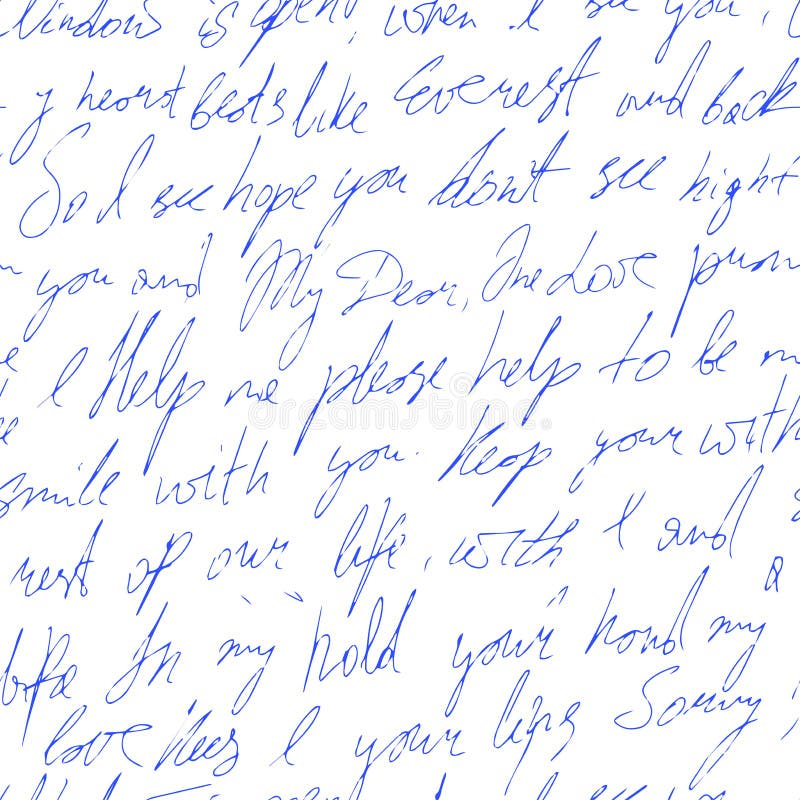 Window is open, when I see you,
y heart beats like Everest and back
So I see hope you don't see night
you and My Dear, The Love
I Help me please help to be m
smile with you. Keep your with
rest of our life, with I and
life In my hold your hand my a
love Kees I your lips Sorry